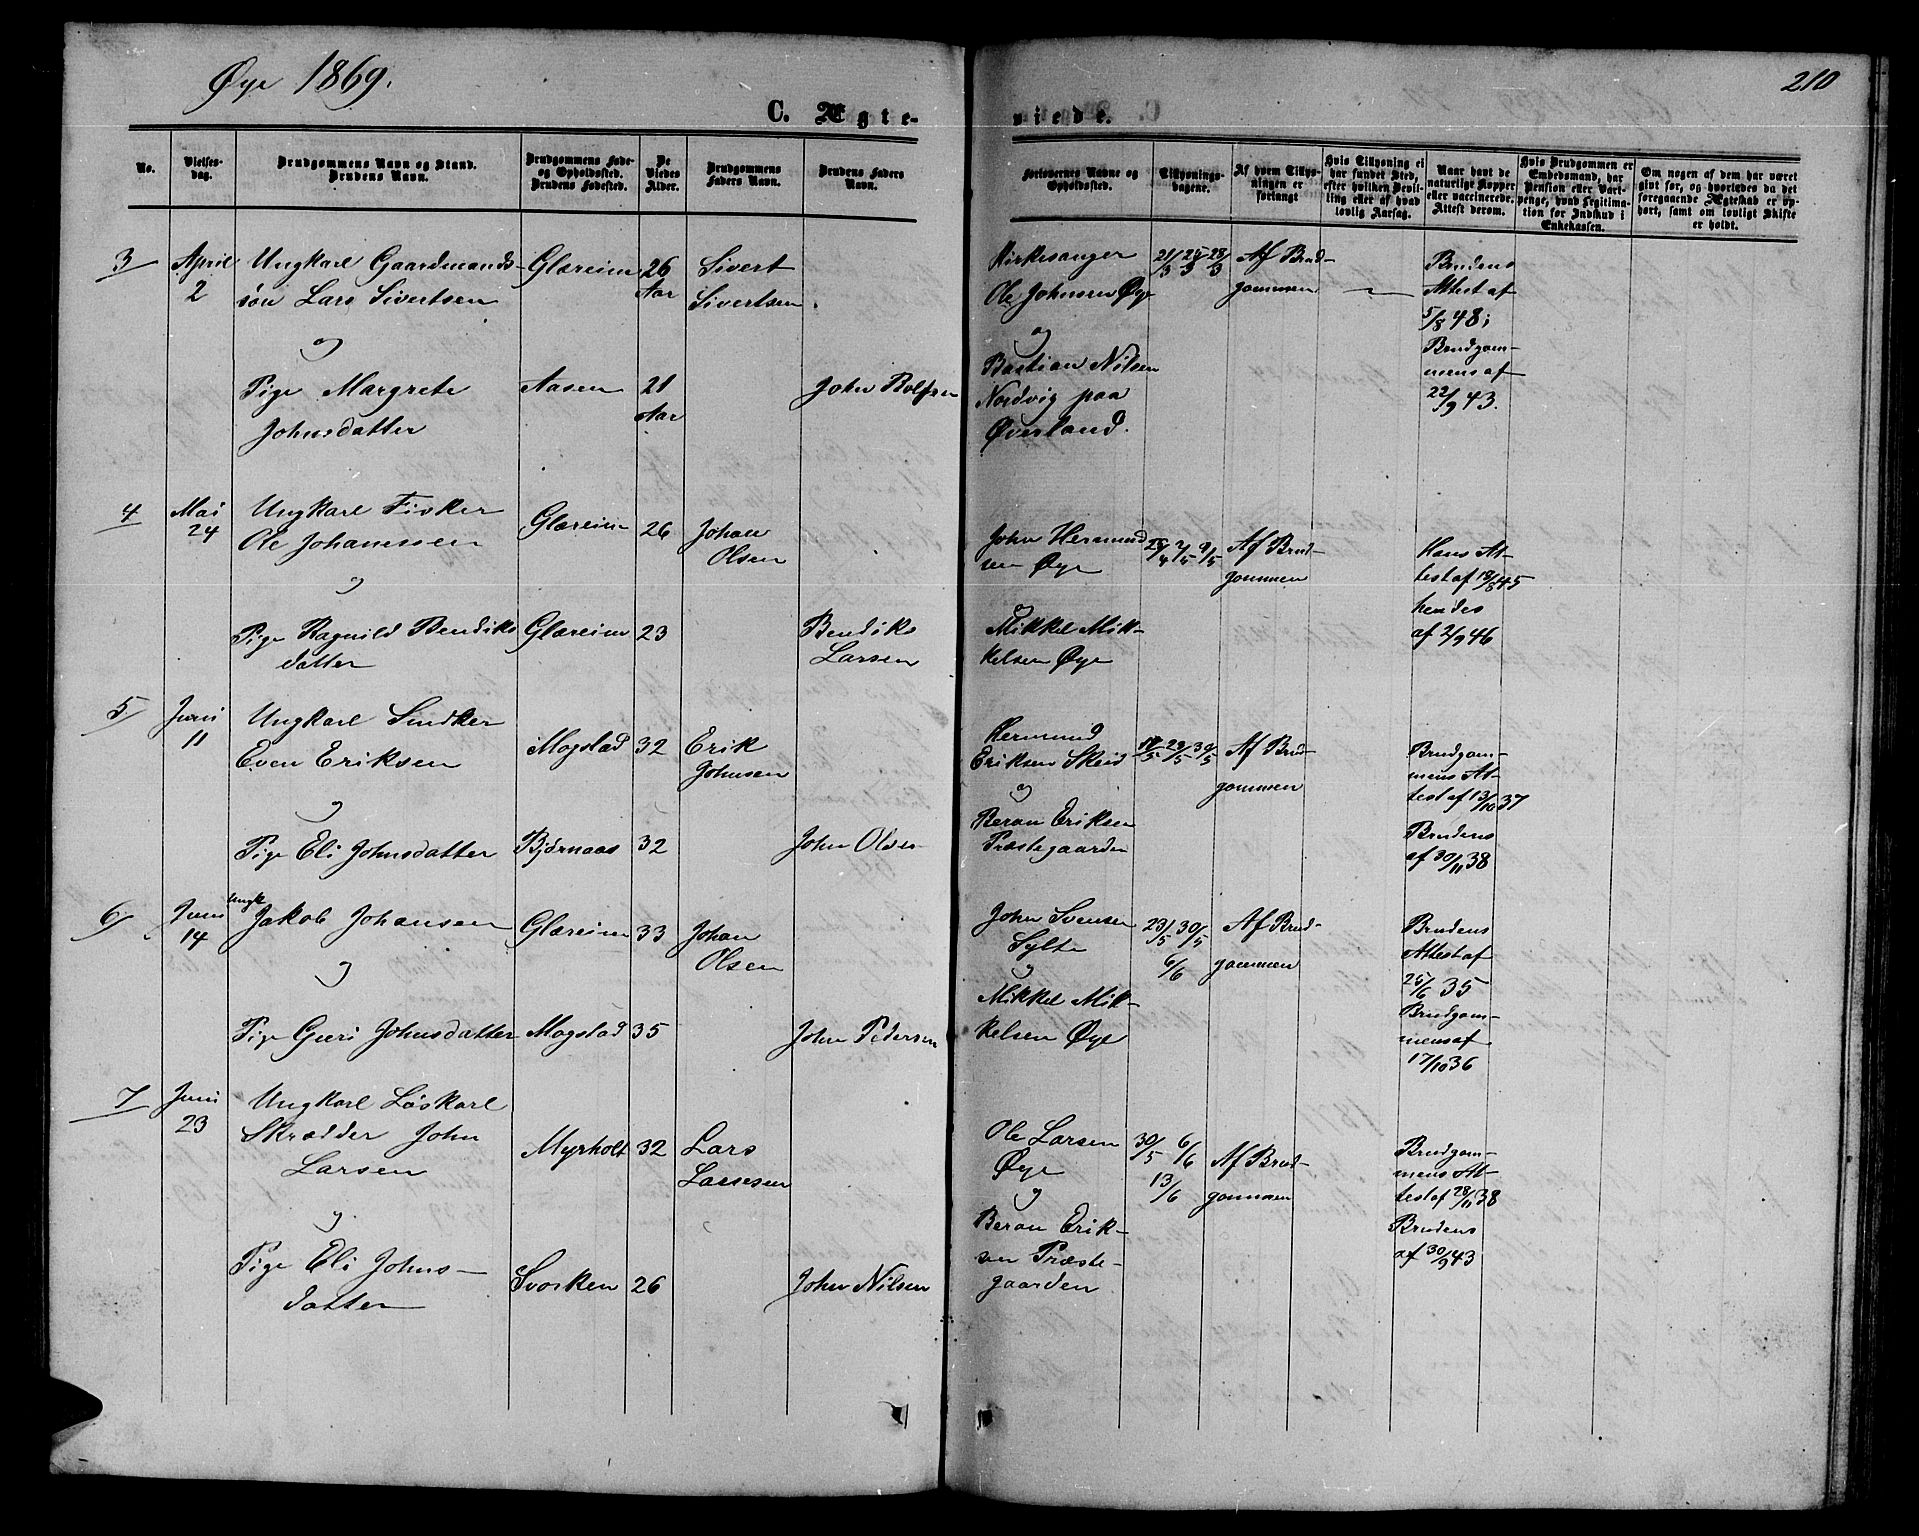 Øye 1869.
210
C. Ægte-
viede.
No.
Vielses-
dag.
Brudgommens Navn og Stand.
Brudens Navn.
Brudgommens Føde-
og Opholdssted.
Brudens Fødested.
De
Viedes
Alder.
Brudgommens
Faders Navn.
Brudens Faders
Navn.
Forlovernes Navne og
Opholdssted.
Tillysnings-
dagene.
Af hvem Tillys-
ningen er
forlangt
Hvis Tillysning ei
har fundet Sted,
efter hvilken Bevil-
ling eller af hvad
lovlig Aarsag.
Naar havt de
naturlige Kopper
eller vaccinerede.
Attest derom.
Hvis Brudgommen er
Embedsmand, har
Pension eller Vart-
penge, hvad Legitima-
tion for Indskud i
Enkekassen.
Om nogen af dem har været
gift før, og hvorledes da det
foregaaende Ægteskab er op-
hørt, samt om lovligt Skifte
er holdt.
3
April
2
Ungkarl Gaardmands-
søn Lars Sivertsen
og
Pige Margrete
Johnsdatter
Glæreim
Aasen
26
Aar
21
Aar
Sivert
Sivertsen
John Rolfsen
Kirkesanger
Ole Johnsen Øye
og
Bastian Nilsen
Nordvig paa
Øverland.
21/3 25/3 28/3
Af Brud-
gommen
Brudens
Attest af
5/8 48;
Brudgom-
mens af
22/9 43.
4
Mai
24
Ungkarl Fisker
Ole Johannssen
og
Pige Ragnild Bendiks
datter
Glæreim
Glæreim
26
23
Johan
Olsen
Bendiks
Larsen
John Hermund
sen Øye
og
Mikkel Mik-
kelsen Øye
25/4 2/5 9/5
Af Brud-
gommen
Hans At-
test af 18/8 45
hendes
af 2/9 46
5
Juni
11
Ungkarl Smedker
Even Eriksen
og
Pige Eli Johnsdatter
Mogstad
Bjørnaas
32
32
Erik
Johnsen
John Olsen
Hermund
Eriksen Skeid
og
Beran Eriksen
Præstegaarden
17/5 23/5 30/5
Af Brud-
gommen
Brudgom-
mens At-
test af 13/10 37
Brudens
af 30/11 38
6
Juni
14
Ungk.
Jakob Johansen
og
Pige Guri Johnsdatter
Glæreim
Mogstad
33
35
Johan
Olsen
John Pedersen
John Svensen
Sylte
og
Mikkel Mik-
kelsen Øye
23/5 30/5
6/6
Af Brud-
gommen
Brudens
Attest af
25/6 35
Brudgom-
mens af
17/10 36
7
Juni
23
Ungkarl Løskarl
Skrædder John
Larsen
og
Pige Eli Johns-
datter
Myrholt
Svorken
32
26
Lars
Larsesen
John Nilsen
Ole Larsen
Øye
og
Beran Erik-
sen Præste-
gaarden
30/5 6/6
13/6
Af Brud-
gommen
Brudgom-
mens At-
test af 28/11 38
Brudens
af 30/9 43